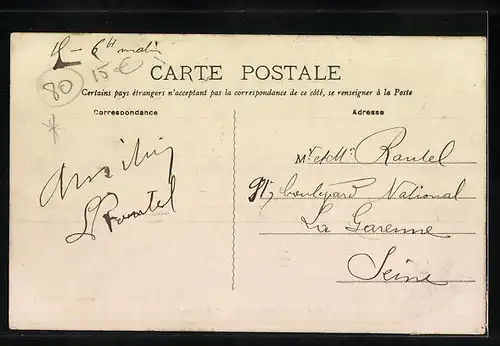 15 - 6 bre matin
80
15 €
CARTE POSTALE
Certains pays étrangers n'acceptant pas la correspondance de ce côté, se renseigner à la Poste
Correspondance
Adresse
Amitiés
Mr et Me Rautel
91, boulevard National
La Garenne
Seine